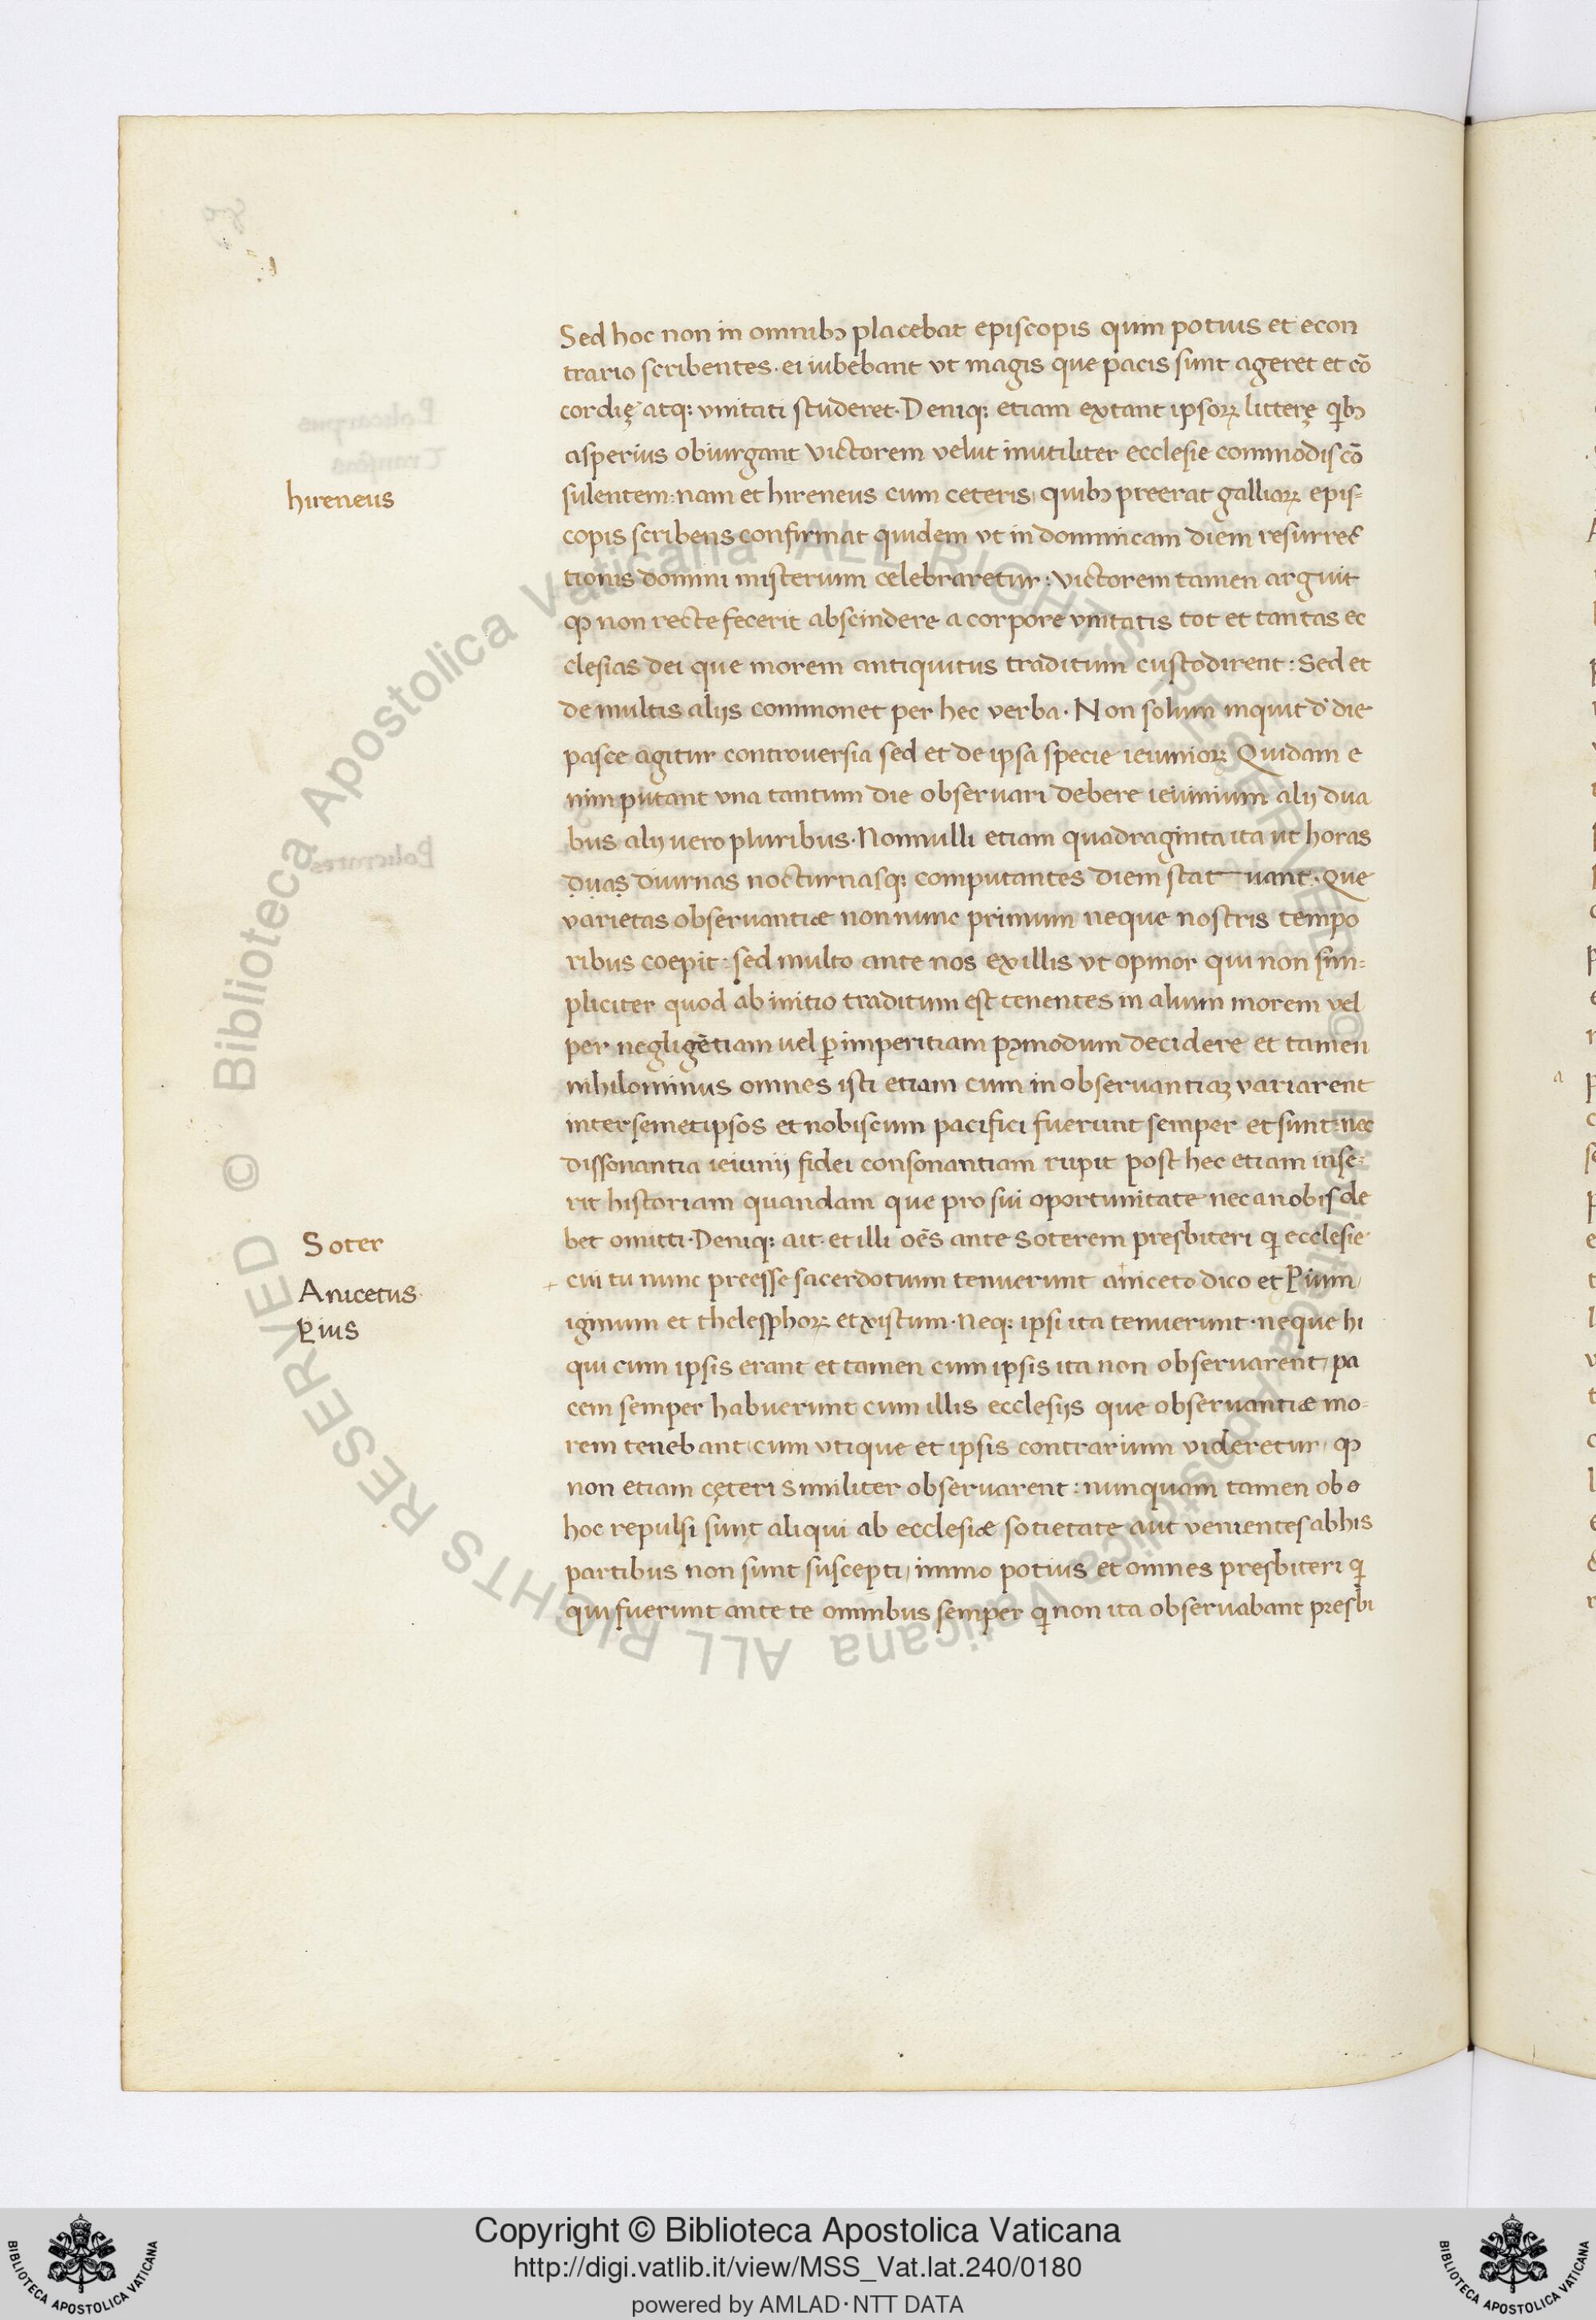 Sed hoc non in omnibꝫ placebat episcopis quin potius et econ
trario scribentes· ei iubebant vt magis que pacis sunt ageret et cō
cordię atqꝫ vnitati studeret· Deniqꝫ etiam extant ipsoꝝ litterę qͥbꝫ
asperius obiurgant victorem velut inutiliter ecclesie commodis cō
sulentem: nam et hireneus cum ceteris quibꝫ preerat galliaꝝ epis-
hireneus
copis scribens confirmat quidem vt in dominicam diem resurrec
tionis domini misterium celebraretur: victorem tamen arguit
ꝙ non recte fecerit abscindere a corpore vnitatis tot et tantas ec
clesias dei que morem antiquitus traditum custodirent: Sed et
de multis alijs commonet per hec verba· Non solum inquit de die
pasce agitur controuersia sed et de ipsa specie ieiunioꝝ Quidam e
nim putant vna tantum die obseruari debere ieiunium alij dua
bus alij uero pluribus· Nonnulli etiam quadraginta ita ut horas
duas diurnas nocturnasqꝫ computantes diem stat uant· Que
varietas obseruantiæ non nunc primum neque nostris tempo
ribus coepit: sed multo ante nos ex illis vt opinor qui non sim-
pliciter quod ab initio traditum est tenentes in alium morem vel
per negligētiam uel ꝑ imperitiam modum decidere et tamen
nihilominus omnes isti etiam cum in obseruantiaꝫ variarent
inter semetipsos et nobiscum pacifici fuerunt semper et sunt: nec
dissonantia ieiunij fidei consonantiam rupit post hec etiam inse-
rit historiam quandam que pro sui oportunitate nec a nobis de
bet omitti· Deniqꝫ ait· et illi oēs ante Soterem presbiteri qͥ ecclesie
Soter
cui tu nunc preesse sacerdotium tenuerunt aniceto dico et Pium
Anicetus
Pius
iginum et thelesphoꝝ et xistum· Neqꝫ ipsi ita tenuerunt· neque hi
qui cum ipsis erant et tamen cum ipsis ita non obseruarent, pa
cem semper habuerunt cum illis ecclesijs que obseruantiæ mo-
rem tenebant cum vtique et ipsis contrarium videretur, ꝙ
non etiam cęteri similiter obseruarent: nunquam tamen ob o
hoc repulsi sunt aliqui ab ecclesiæ societate aut venientes ab his
partibus non sunt suscepti, immo potius et omnes presbiteri qͥ
qui fuerunt ante te omnibus semper qͥ non ita obseruabant presbi
Copyright © Biblioteca Apostolica Vaticana
http://digi.vatlib.it/view/MSS_Vat.lat.240/0180
powered by AMLAD·NTT DATA
BIBLIOTECA APOSTOLICA VATICANA
BIBLIOTECA APOSTOLICA VATICANA
© Biblioteca Apostolica Vaticana ALL RIGHTS RESERVED
© Biblioteca Apostolica Vaticana ALL RIGHTS RESERVED